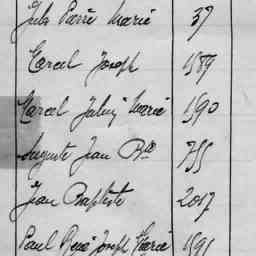 Jules Pierre Marie 37
Marcel Joseph 1589
Marcel Marie 1590
Auguste Jean Bte 755
Jean Baptiste 2017
Paul René Joseph Marie 1591